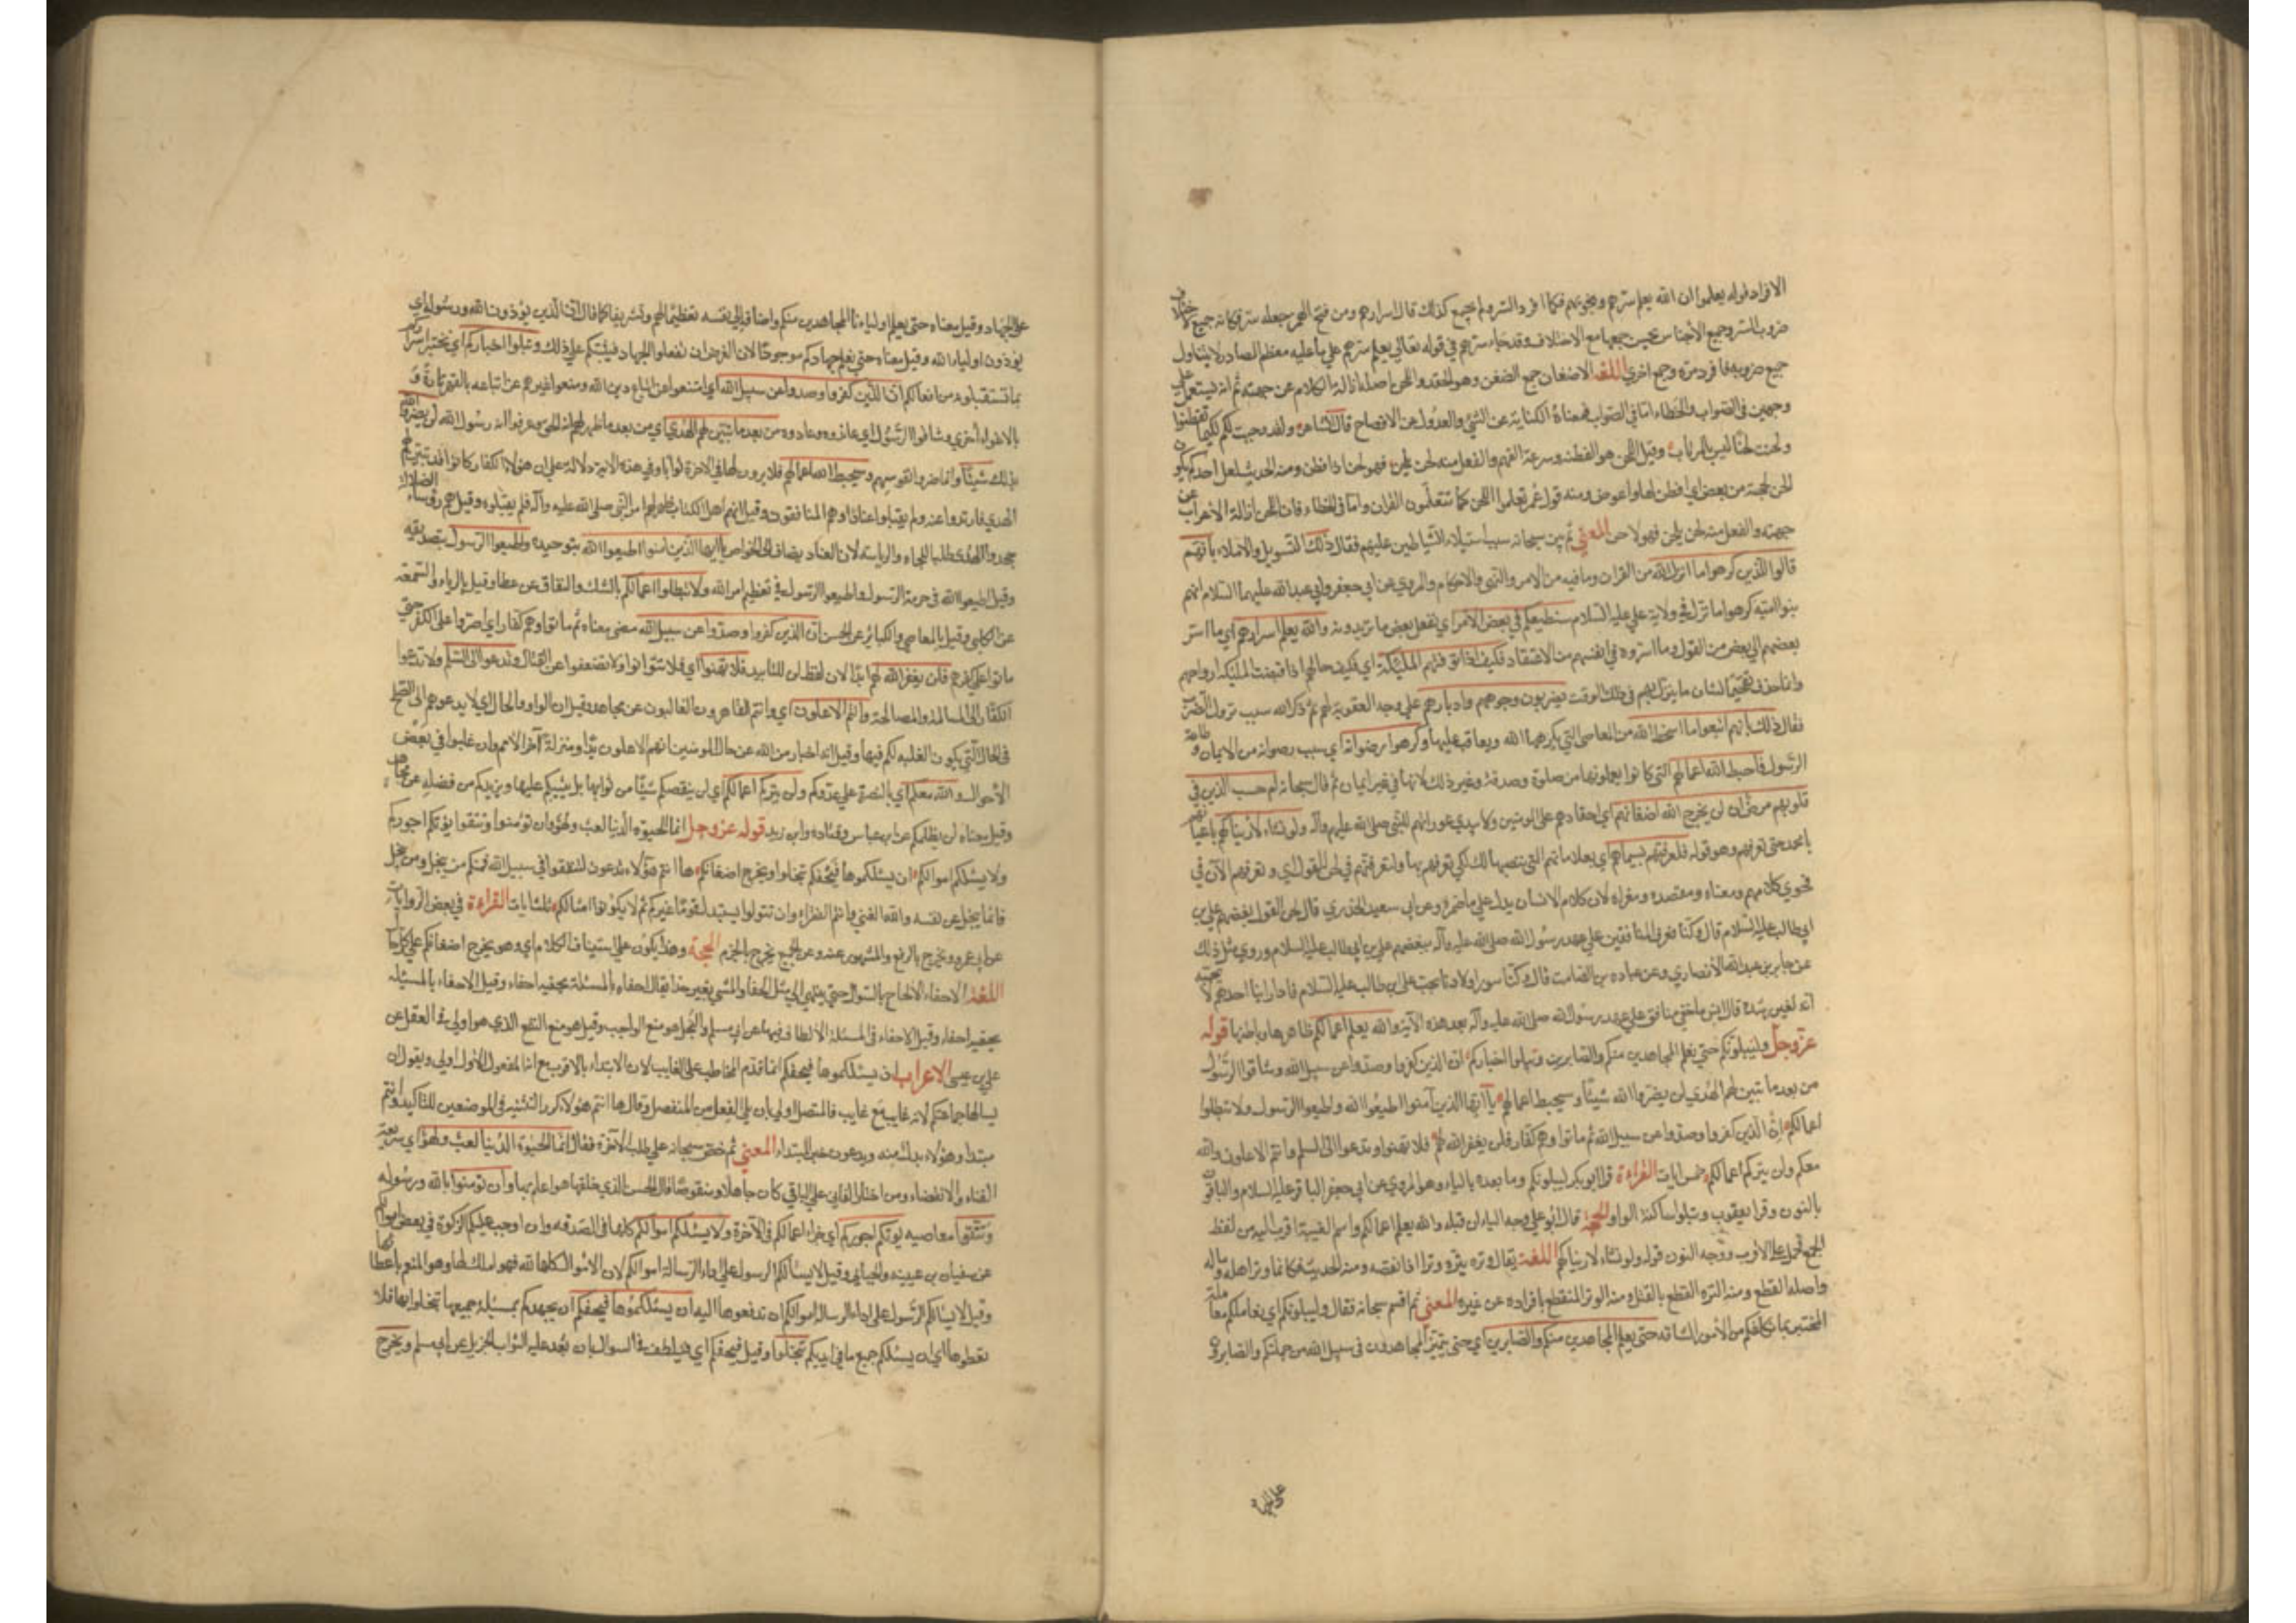 الافراد قوله يعلموا ان الله يعلم سرهم ونجويهم فكما افرد السر ولم يجمع كذلك قال اسرارهم ومن فتح الهمزجعله سر فكانه جميع لاختلاف
ضروب السر وجميع الأجناس يحسن جمعها مع الاختلاف وقد جاء سرهم في قوله تعالى يعلم سرهم على ما عليه معظم المصادر لا يتناول
جميع ضروبه فافرد مرة وجمع اخري اللغة الاضغان جمع الضغن وهو الحقد واللحن اصله ازالة الكلام عن جهته ثم انه يستعمل على
وجهين في الصواب والخطاء اما في الصواب فمعناه الكناية عن الشئ والعدول عن الافصاح قال الشاعر ولقد وحيت لكم لكيما تفطنوا
ولحنت لحنًا ليس بالمرتاب وقيل اللحن هو الفطنه وسرعة الفهم والفعل منه لحن يلحن فهو لحن اذا فطن ومنه الحديث لعل احدكم يكون
الحن بحجته من بعض اي افطن لها واعوص ومنه قول عمر تعلموا اللحن كما تتعلمون القران واما في الخطاء فان اللحن ازالة الاعراب عن
جهته والفعل منه لحن يلحن فهو لاحن المعني ثم بين سبحانه سبب استيلاء الشياطين عليهم فقال ذلك التسويل والاملاء بانهم
قالوا للذين كرهوا ما انزل الله من القران وما فيه من الامر والنهي والاحكام والمروي عن ابي جعفر وابي عبد الله عليهما السلام انهم
بنوا اميه كرهوا ما نزل في ولاية علي عليه السلام سنطيعكم في بعض الامر اي نفعل بعض ما تريدونه والله يعلم اسرارهم اي ما اسر
بعضهم الي بعض من القول وما اسروه في انفسهم من الاعتقاد فكيف اذا توفتهم الملئكة اي فكيف حالهم اذا قبضت الملئكة ارواحهم
وانما حذف تفخيمًا لشان ما ينزل بهم في ذلك الوقت يضربون وجوههم وادبارهم علي وجه العقوبة لهم ثم ذكر الله سبب نزول الضرب
فقال ذلك بانهم اتبعوا ما اسخط الله من المعاصي التي يكرهها الله ويعاقب عليها وكرهوا رضوانه اي سبب رضوانه من الايمان وطاعة
الرسول فاحبط الله اعمالهم التي كانوا يعملونها من صلوة وصدقة وغير ذلك لانها في غير ايمان ثم قال سبحانه ام حسب الذين في
قلوبهم مرض ان لن يخرج الله اضغانهم اي احقادهم علي المومنين ولا يبدي عوراتهم للنبي صلى الله عليه وآله ولو نشاء لاريناكهم باعيانهم
يا محمد حتى تعرفهم وهو قوله فلعرفتهم بسيماهم اي بعلاماتهم التي ننصبها لك لكي تعرفهم بها ولتعرفنهم في لحن القول اي وتعرفهم الآن في
فحوي كلامهم ومعناه ومقصده ومغزاه لان كلام الانسان يدل علي ما ضمره وعن ابي سعيد الخدري قال لحن القول بغضهم علي بن
ابي طالب عليه السلام قال وكنا نعرف المنافقين علي عهد رسول الله صلى الله عليه وآله ببغضهم علي بن ابي طالب عليه السلام وروي مثل ذلك
عن جابر بن عبد الله الأنصاري وعن عباده بن الصامت قال وكنا نبور اولادنا بحب علي ابن طالب عليه السلام فاذا راينا احدهم لا يحبه
انه لغير رشده قال انس ما خفي منافق علي عهد رسول الله صلى الله عليه وآله بعد هذه الآية والله يعلم اعمالكم ظاهرها وباطنها قوله
عز وجل ولنبلونكم حتي نعلم المجاهدين منكم والصابرين ونبلوا اخباركم ان الذين كفروا وصدوا عن سبيل الله وشاقوا الرسول
من بعد ما تبين لهم الهدي لن يضروا الله شيئًا وسيحبط اعمالهم يا ايها الذين آمنوا اطيعوا الله واطيعوا الرسول ولا تبطلوا
اعمالكم ان الذين كفروا وصدوا عن سبيل الله ثم ماتوا وهم كفار فلن يغفر الله لهم فلا تهنوا وتدعوا الى السلم وانتم الاعلون والله
معكم ولن يتركم اعمالكم خمس ايات القراءة قرا ابو بكر ليبلونكم وما بعده بالياء وهو المروي عن ابي جعفر الباقر عليه السلام والباقون
بالنون وقرا يعقوب ونبلوا ساكنة الواو الحجة قال ابو علي وجه الياء ان قبله والله يعلم اعمالكم واسم الغيبة اقرب اليه من لفظ
الجمع فحمل علي الاقرب ووجه النون قوله ولو نشاء لاريناكهم اللغة يقال وتره يتره وترا اذا نقصه ومنه الحديث فكانما وتر اهله وماله
واصله القطع ومنه التره القطع بالقتل ومنه الوتر المنقطع بافراده عن غيره المعني ثم اقسم سبحانه فقال ولنبلونكم اي نعاملكم معاملة
المختبر بما نكلفكم من الأمور الشاقه حتى يعلم المجاهدين منكم والصابرين اي حتى يتميز المجاهدون في سبيل الله من جملتكم والصابرون
علي الجهاد
علي الجهاد وقيل معناه حتى يعلم اولياءنا المجاهدين منكم واضافه الي نفسه تعظيمًا لهم وتشريفا كما قال ان الذين يؤذون الله ورسوله اي
يؤذون اولياء الله وقيل معناه حتي نعلم جهادكم موجودًا لان الغرض ان تفعلوا الجهاد فيثيبكم علي ذلك ونبلوا اخباركم اي نختبر اسراركم
بما تستقبلونه من افعالكم ان الذين كفروا وصدوا عن سبيل الله اي امتنعوا عن اتباع دين الله ومنعوا غيرهم عن اتباعه بالقهر تارة و
بالاغواء أخري وشاقوا الرسول اي عاندوه وعادوه من بعد ما تبين لهم الهدي اي من بعد ما ظهر لهم انه الحق وعرفوا انه رسول الله لن يضروا الله
بذلك شيئًا وانما ضروا نفوسهم وسيحبط الله اعمالهم فلا يرون لها في الآخرة ثوابا وفي هذه الاية دلالة علي ان هؤلاء الكفار كانوا قد تبين لهم
الهدي فارتدوا عنه ولم يقبلوا عنادًا وهم المنافقون وقيل انهم اهل الكتاب ظهر لهم امر النبي صلى الله عليه وآله فلم يقبلوه وقيل هم رؤساء الضلالة
جحدوا الهدي طلبا للجاه والرياسه لان العناد يضاف الي الخواص يا ايها الذين امنوا اطيعوا الله بتوحيده واطيعوا الرسول بتصديقه
وقيل اطيعوا الله في حرمة الرسول واطيعوا الرسول في تعظيم امر الله ولا تبطلوا اعمالكم بالشك والنفاق عن عطا وقيل بالرياء والسمعة
عن الكلبي وقيل بالمعاصي والكبائر عن الحسن ان الذين كفروا وصدوا عن سبيل الله مضي معناه ثم ماتوا وهم كفار اي اصروا علي الكفر حتي
ماتوا علي كفرهم فلن يغفر الله لهم ابدًا لان لفظ لن للتابيد فلا تهنوا اي فلا تتوانوا ولا تضعفوا عن القتال وتدعوا الى السلم ولا تدعوا
الكفار الي المسالمة والمصالحة وانتم الاعلون اي وانتم القاهرون الغالبون عن مجاهد وقيل ان الواو للحال اي لا تدعوهم الى الصلح
في الحال التي يكون الغلبه لكم فيها وقيل انه اخبار من الله عن حال المومنين انهم الاعلون يدًا ومنزلة آخر الامر وان غلبوا في بعض
الأحوال والله معكم اي بالنصرة علي عدوكم ولن يتركم اعمالكم اي لن ينقصكم شيئًا من ثوابها بل يثيبكم عليها ويزيدكم من فضله عن مجاهد
وقيل معناه لن يظلمكم عن ابن عباس وقتادة وابن زيد قوله عز وجل انما الحيوة الدنيا لعب ولهو وان تؤمنوا وتتقوا يؤتكم اجوركم
ولا يسئلكم اموالكم ان يسئلكموها فيحفكم تبخلوا ويخرج اضغانكم ها انتم هؤلاء تدعون لتنفقوا في سبيل الله فمنكم من يبخل ومن يبخل
فانما يبخل عن نفسه والله الغني وانتم الفقراء وان تتولوا يستبدل قومًا غيركم ثم لا يكونوا امثالكم ثلث ايات القراءة في بعض الروايات
عن ابي عمرو ويخرج بالرفع والمشهور عنه وعن الجميع يخرج بالجزم الحجة وهذا يكون علي استيناف الكلام اي وهو يخرج اضغانكم علي كل حال
اللغة الاحفاء الالحاح بالسوال حتي ينتهي الي مثل الحفا والمشي بغير حذا يقال احفاه بالمسئلة يحفيه احفاء وقيل الاحفاء بالمسئله
يحفيه احفاء وقيل الاحفاء في المسئلة الألطاف فيها عن ابي مسلم والبخل هو منع الواجب وقيل هو منع النفع الذي هو اولي في العقل عن
علي بن عيسى الاعراب ان يسئلكموها فيحفكم انما قدم المخاطب علي الغايب لان الابتداء بالاقرب مع انه المفعول الاول اولي ويقول ان
يسالها جماعتكم لانه غايب مع غايب فالمتصل اولي بان يلي الفعل من المنفصل وقال ها انتم هؤلاء كرر التنبيه في الموضعين للتاكيد وانتم
مبتدا وهؤلاء بدل منه ويدعون خبر المبتداء المعني ثم حض سبحانه علي طلب الآخرة فقال انما الحيوة الدنيا لعب ولهو اي سريعة
الفناء والانقضاء ومن اختار الفاني علي الباقي كان جاهلا ومنقوصًا قال الحسن الذي خلقها هو اعلم بها وان تؤمنوا بالله ورسوله
وتتقوا معاصيه يؤتكم اجوركم اي جزاء اعمالكم في الآخرة ولا يسئلكم اموالكم كلها في الصدقه وان اوجب عليكم الزكوة في بعض اموالكم
عن سفيان بن عيينه والجبائي وقيل لا يسألكم الرسول علي اداء الرسالة اموالكم لان الاموال كلها لله فهو املك لها وهو المنعم باعطائها
وقيل لا يسالكم الرسول علي اداء الرسالة اموالكم ان تدفعوها اليه ان يسئلكموها فيحفكم ان يجهدكم بمسئلة جميعها تبخلوا بها فلا
تعطوها اي ان يسئلكم جميع ما في ايديكم تبخلوا وقيل فيحفكم اي فيلطف في السوال بان يعد عليه الثواب الجزيل عن ابي مسلم ويخرج